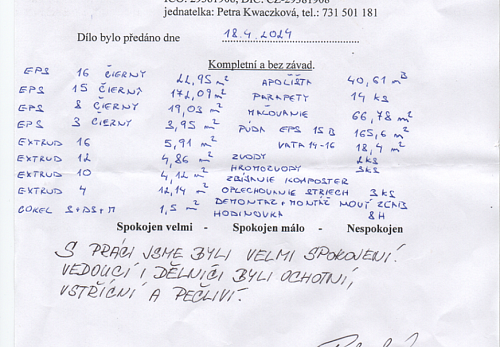 jednatelka: Petra Kwaczková, tel.: 731 501 181
Dílo bylo předáno dne 18.4.2024
Kompletní a bez závad.
EPS 16 ČIERNY 22,95 m² APOLIŠTA 40,61 m
EPS 15 ČIERNY 172,09 m² PARAPETY 14 KS
EPS 8 ČIERNY 19,03 m² MAĽOVANIE 66,78 m²
EPS 3 ČIERNY 3,95 m² PÔDA EPS 15 B 165,6 m²
EXTRUD 16 5,91 m² VATA 14-16 18,4 m²
EXTRUD 12 4,86 m² ZVODY 2 KS
EXTRUD 10 4,12 m² HROMOZVODY 3KS
EXTRUD 4 12,14 m² ZBÍJANIE KOMPOSTER
OPLECHOVANIE STRIECH 3 KS
COKEL S+DS+M 1,5 m² DEMONTÁŽ+MONTÁŽ
HODINOVKA 8 H
Spokojen velmi - Spokojen málo - Nespokojen
S PRÁCÍ JSME BYLI VELMI SPOKOJENÍ.
VEDOUCÍ I DĚLNÍCI BYLI OCHOTNÍ,
VSTŘÍCNÍ A PEČLIVÍ.